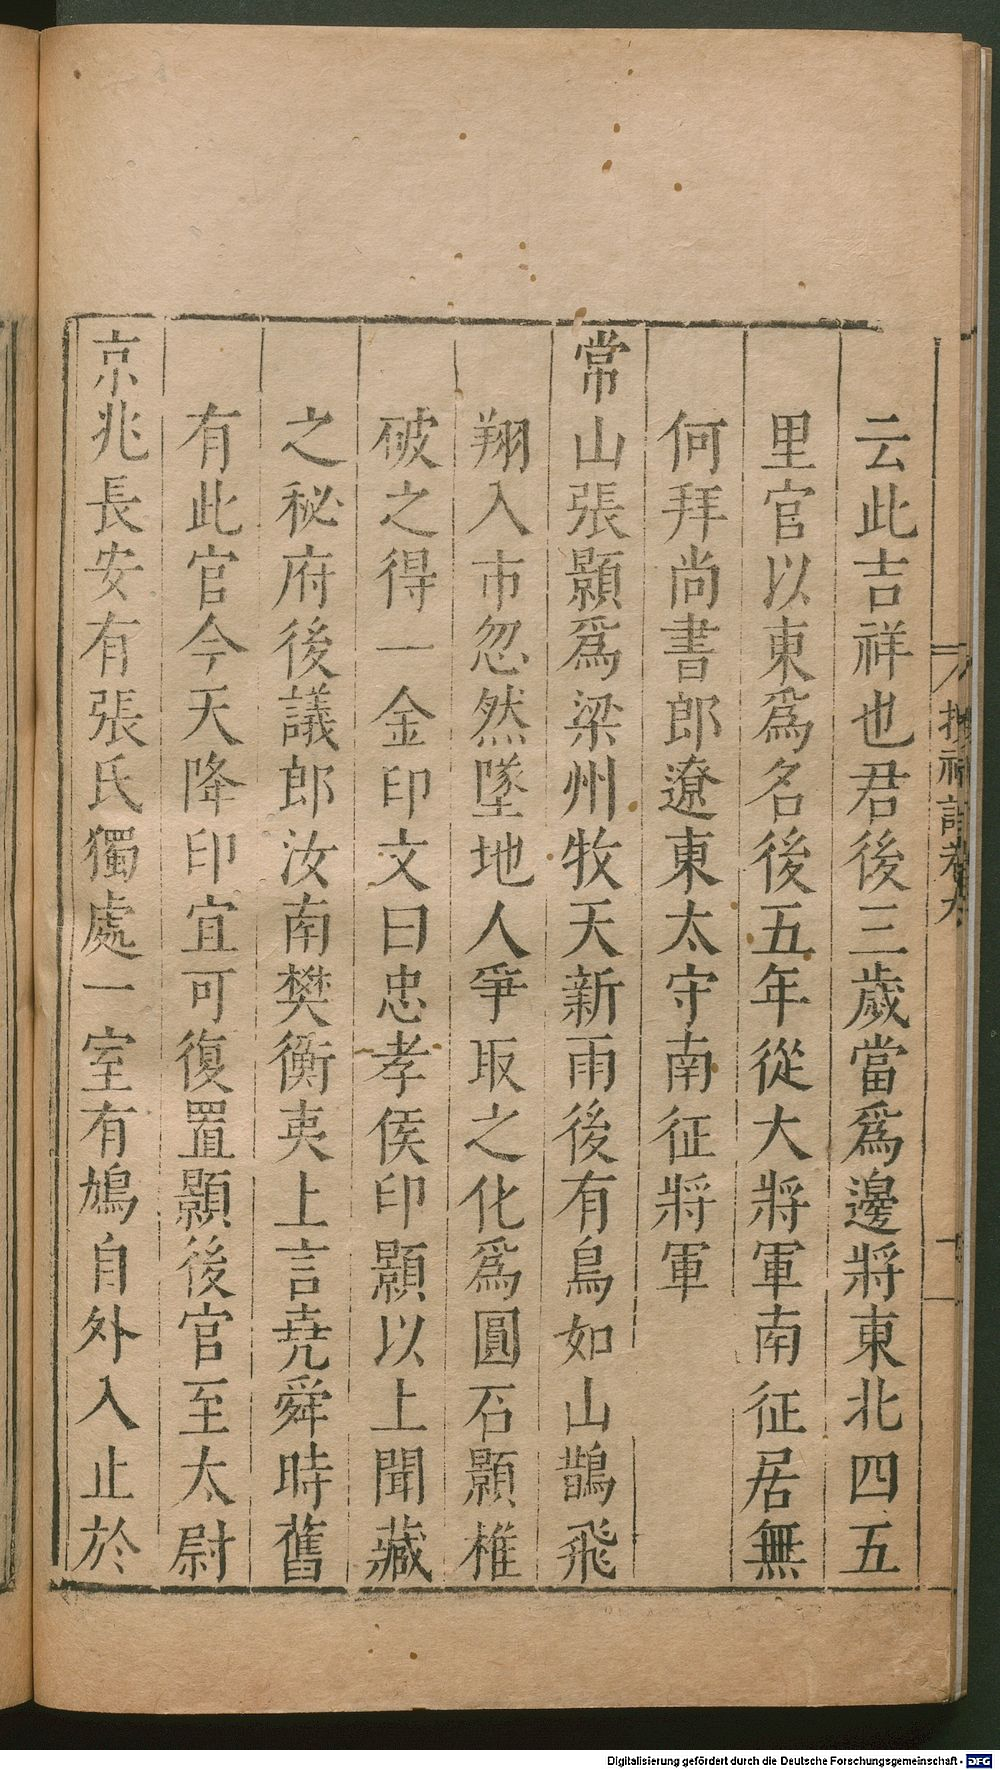 云此吉祥也君後三歲當爲邊將東北四五
里官以東爲名後五年從大將軍南征居無
何拜尚書郎遼東太守南征將軍
常山張顥爲梁州牧天新雨後有鳥如山鵲飛
翔入市忽然墜地人爭取之化爲圓石顥椎
破之得一金印文曰忠孝侯印顥以上聞藏
之秘府後議郎汝南樊衡夷上言堯舜時舊
有此官今天降印宜可復置顥後官至太尉
京兆長安有張氏獨處一室有鳩自外入止於
卷九
Digitalisierung gefördert durch die Deutsche Forschungsgemeinschaft - DFG